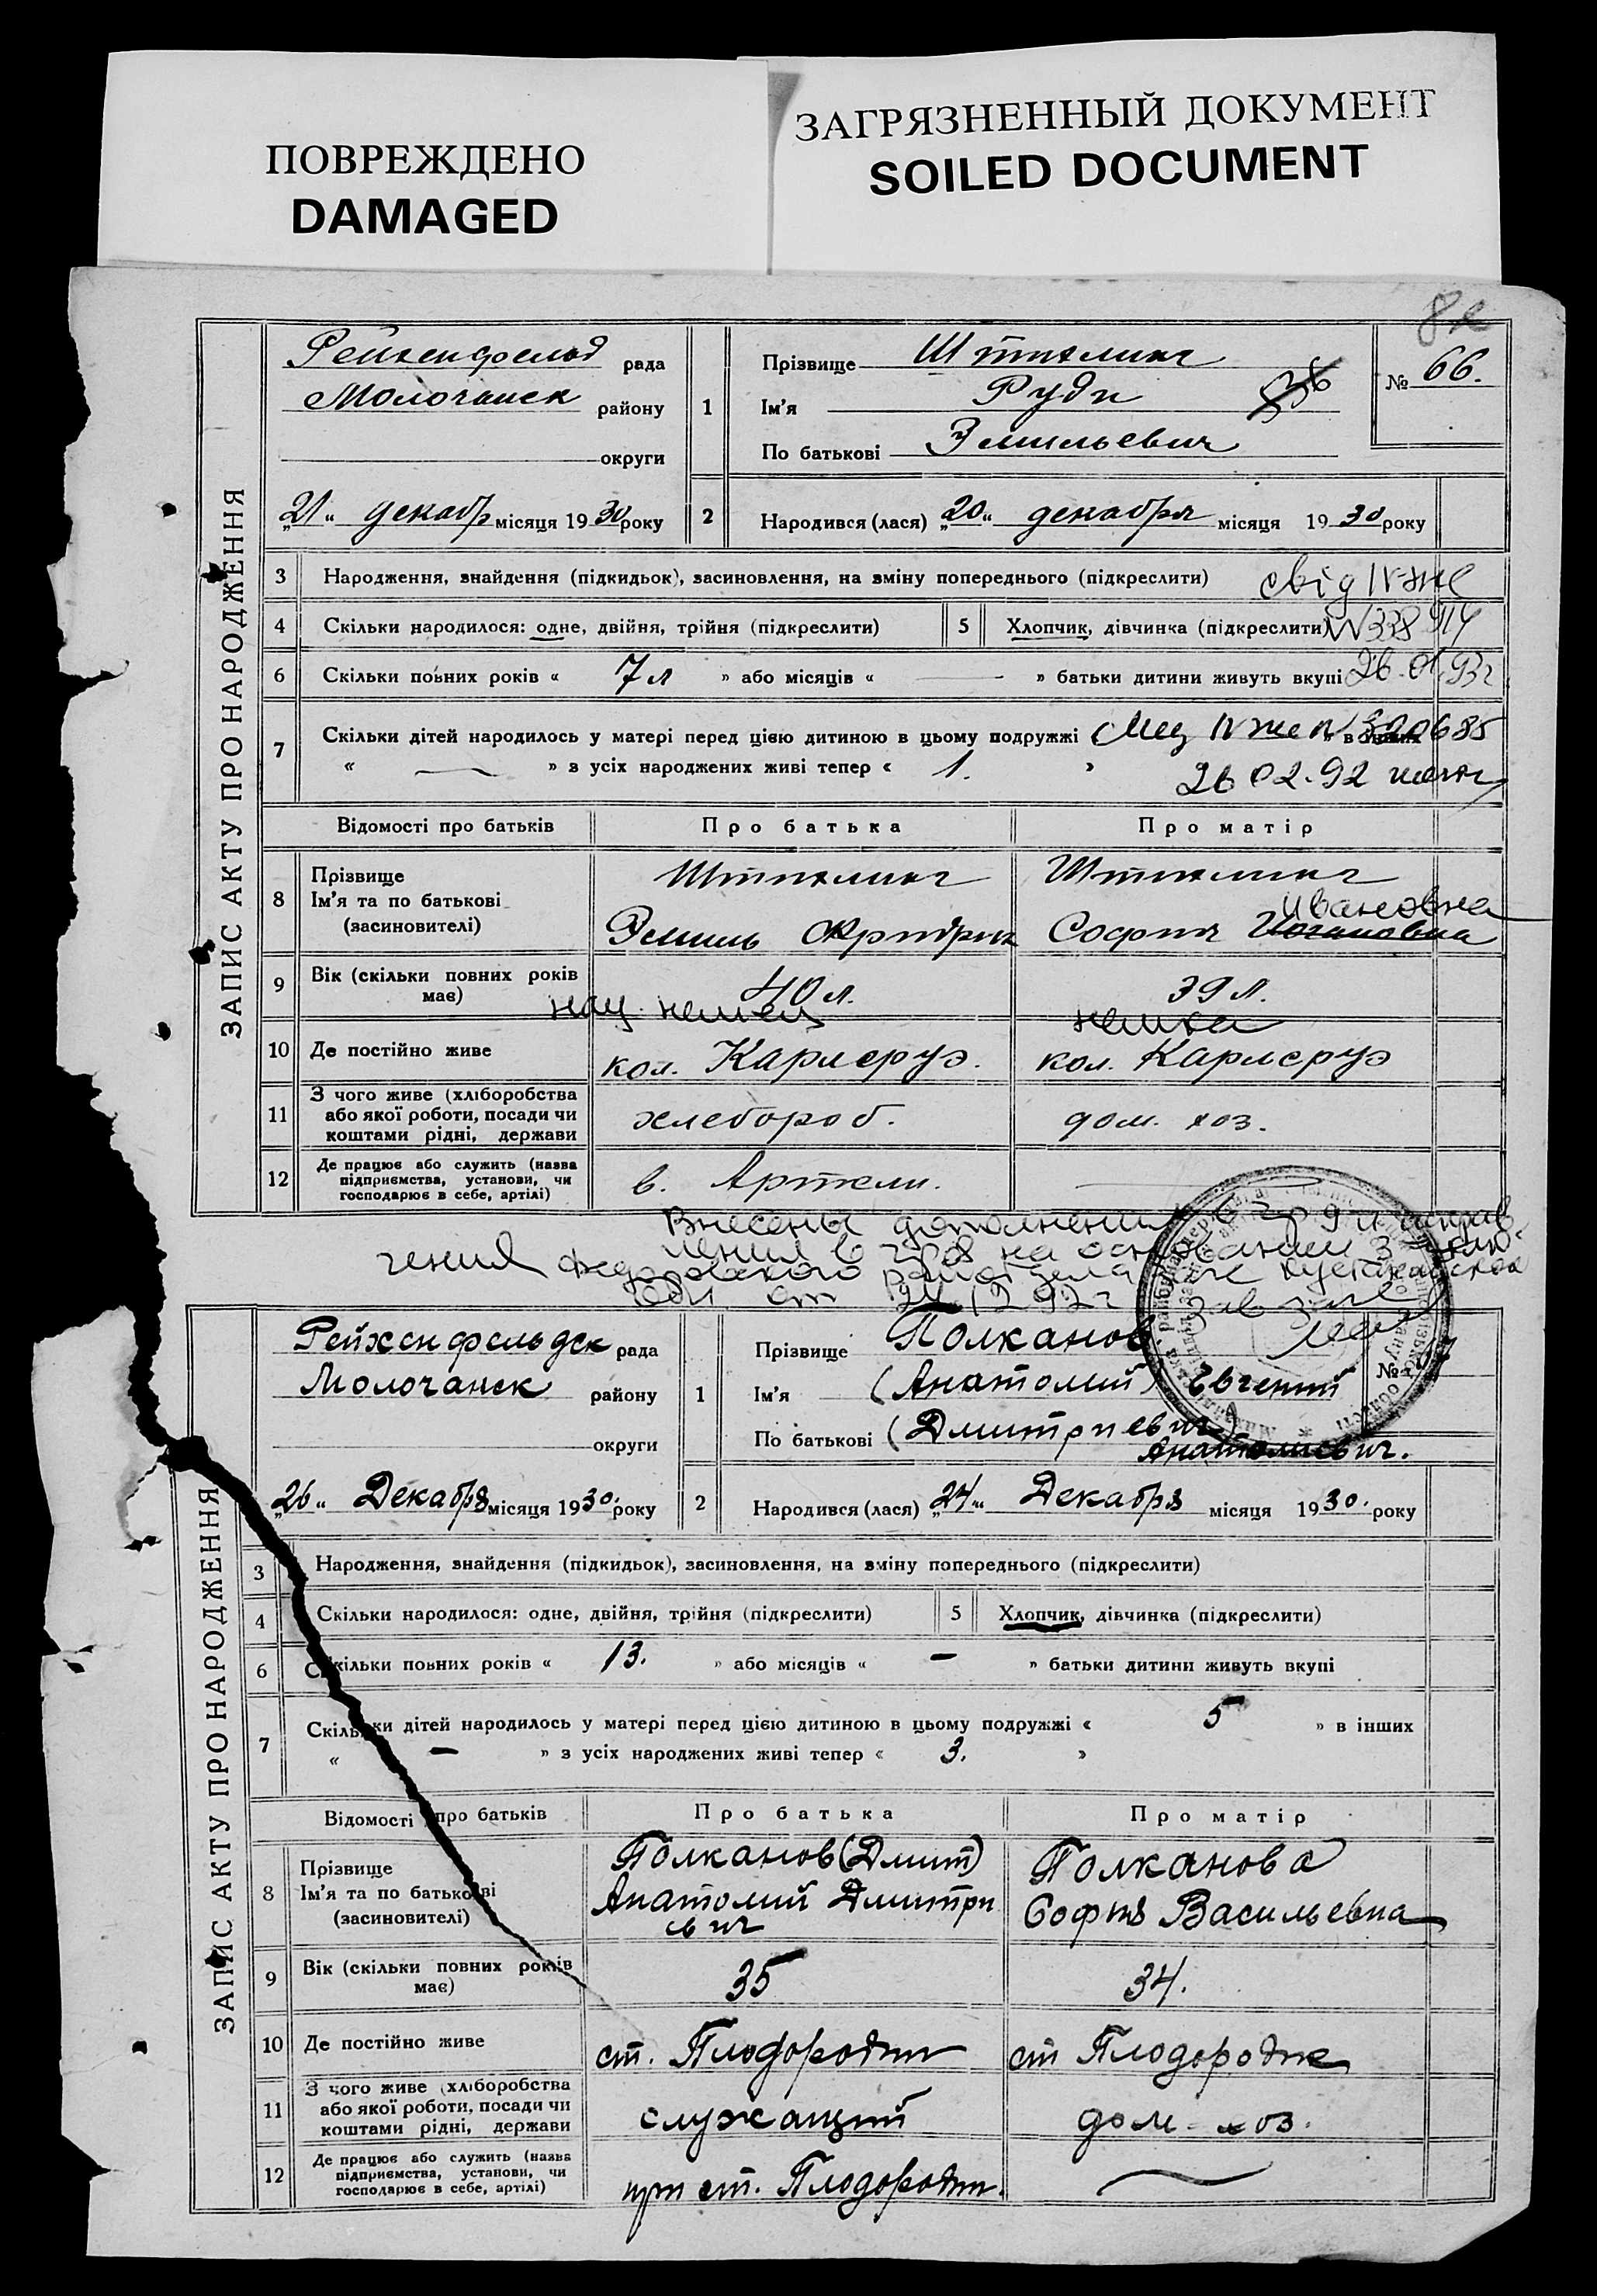 ПОВРЕЖДЕНО
DAMAGED
ЗАГРЯЗНЕННЫЙ ДОКУМЕНТ
SOILED DOCUMENT
ЗАПИС АКТУ ПРО НАРОДЖЕННЯ
Рейхенфельд рада
Молочанск району
округи
„21“ декабр місяця 1930 року
1
Прізвище Штиклинг
Ім'я Руди
По батькові Эмильевич
№ 66.
2 Народився (лася) „20“ декабря місяця 1930 року
3 Народження, знайдення (підкидьок), засиновлення, на зміну попереднього (підкреслити) свід IV-жс
4 Скільки народилося: одне, двійня, трійня (підкреслити) 5 Хлопчик, дівчинка (підкреслити) N 338914
6 Скільки повних років « 7 л » або місяців « — » батьки дитини живуть вкупі 26.01.93г
7 Скільки дітей народилось у матері перед цією дитиною в цьому подружжі « IV жс N 320685 » в інших
« — » з усіх народжених живі тепер « 1. » 26 02-92
Відомості про батьків Про батька Про матір
8 Прізвище
Ім'я та по батькові
(засиновителі)
Штиклинг
Эмиль Фридрих
Штиклинг
Ивановна
София Иогановна
9 Вік (скільки повних років має) 40 л. 39 л.
нац. немец немка
10 Де постійно живе кол. Карлсруэ. кол. Карлсруэ
11 З чого живе (хліборобства
або якої роботи, посади чи
коштами рідні, держави
хлебороб. дом. хоз.
12 Де працює або служить (назва
підприємства, установи, чи
господарює в себе, артілі)
в. Артели. —
Внесены дополнения в гр 9 и исправ-
ления в гр 8 на основании заклю-
чения Федоровского райотдела Кустанайской
обл от
ЗАПИС АКТУ ПРО НАРОДЖЕННЯ
Рейхенфельдск рада
Молочанск району
округи
„26“ Декабря місяця 1930. року
1
Прізвище Полканов
Ім'я (Анатолий) Евгений
По батькові (Дмитриевич)
Анатолиевич.
№ 67
2 Народився (лася) „24“ Декабря місяця 1930. року
3 Народження, знайдення (підкидьок), засиновлення, на зміну попереднього (підкреслити)
4 Скільки народилося: одне, двійня, трійня (підкреслити) 5 Хлопчик, дівчинка (підкреслити)
6 Скільки повних років « 13. » або місяців « — » батьки дитини живуть вкупі
7 Скільки дітей народилось у матері перед цією дитиною в цьому подружжі « 5 » в інших
« — » з усіх народжених живі тепер « 3. »
Відомості про батьків Про батька Про матір
8 Прізвище
Ім'я та по батькові
(засиновителі)
Полканов (Дмит)
Анатолий Дмитри
евич
Полканова
София Васильевна
9 Вік (скільки повних років має) 35 34.
10 Де постійно живе ст. Плодородия ст Плодородие
11 З чого живе (хліборобства
або якої роботи, посади чи
коштами рідні, держави
служащий дом-хоз.
12 Де працює або служить (назва
підприємства, установи, чи
господарює в себе, артілі)
при ст. Плодородии. —